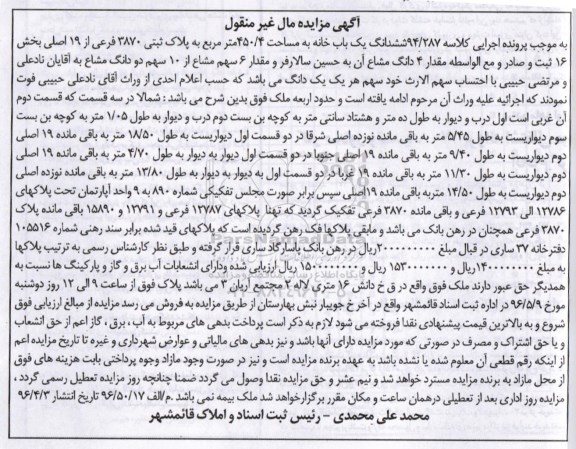 آگهی مزایده مال غیر منقول
به موجب پرونده اجرایی کلاسه ۹۴/۲۸۷ششدانگ یک باب خانه به مساحت ۴۵۰/۴متر مربع به پلاک ثبتی ۳۸۷۰ فرعی از ۱۹ اصلی بخش
۱۶ ثبت و صادر و مع الواسطه مقدار ۴ دانگ مشاع آن به حسین سالارفر و مقدار ۶ سهم مشاع از ۱۰ سهم دو دانگ مشاع به آقایان نادعلی
و مرتضی حبیبی با احتساب سهم الارث خود سهم هر یک یک دانگ می باشد که حسب اعلام احدی از وراث آقای نادعلی حبیبی فوت
نمودند که اجرائیه علیه وراث آن مرحوم ادامه یافته است و حدود اربعه ملک فوق بدین شرح می باشد : شمالا در سه قسمت که قسمت دوم
آن غربی است اول درب و دیوار به طول ده متر و هشتاد سانتی متر به کوچه بن بست دوم درب و دیوار به طول ۱/۰۵ متر به کوچه بن بست
سوم دیواریست به طول ۵/۴۵ متر به باقی مانده نوزده اصلی شرقا در دو قسمت اول دیواریست به طول ۱۸/۵۰ متر به باقی مانده ۱۹ اصلی
دوم دیواریست به طول ۹/۴۰ متر به باقی مانده ۱۹ اصلی جنوبا در دو قسمت اول دیوار به دیوار به طول ۴/۷۰ متر به باقی مانده ۱۹ اصلی
دوم دیواریست به طول ۱۱/۳۰ متر به باقی مانده ۱۹ غربا در دو قسمت اول به دیوار به دیوار به طول ۱۳/۸۰ متر به باقی مانده نوزده اصلی
دوم دیواریست به طول ۱۴/۵۰ متربه باقی مانده ۱۹اصلی سپس برابر صورت مجلس تفکیکی شماره ۸۹۰ به ۹ واحد آپارتمان تحت پلاکهای
۱۲۷۸۶ الی ۱۲۷۹۳ فرعی و باقی مانده ۳۸۷۰ فرعی تفکیک گردید که تهنا پلاکهای ۱۲۷۸۷ فرعی و ۱۲۷۹۱ و ۱۵۸۹۰ باقی مانده پلاک
۳۸۷۰ فرعی همچنان در رهن بانک می باشد و مابقی پلاکها فک رهن گردیده است که پلاکهای قید شده برابر سند رهنی شماره ۱۰۵۵۱۶
دفترخانه ۳۷ ساری در قبال مبلغ ۲۰۰۰۰۰۰۰۰۰ریال در رهن بانک پاسارگاد ساری قرار گرفته و طبق نظر کارشناس رسمی به ترتیب پلاکها
به مبلغ ۱۴۰۰۰۰۰۰۰۰ریال و ۱۵۳۰۰۰۰۰۰۰ ریال و ۱۵۰۰۰۰۰۰۰ ریال ارزیابی شده ودارای انشعابات آب برق و گاز و پارکینگ ها نسبت به
همدیگر حق عبور دارند ملک فوق واقع در ق خ دانش ۱۶ متری لاله ۲ مجتمع آریان ۳ می باشد پلاک فوق از ساعت ۹ الی ۱۲ روز دوشنبه
مورخ ۹۶/۵/۹ در اداره ثبت اسناد قائمشهر واقع در آخر خ جویبار نبش بهارستان از طریق مزایده به فروش می رسد مزایده از مبالغ ارزیابی فوق
شروع و به بالاترین قیمت پیشنهادی نقدا فروخته می شود لازم به ذکر است پرداخت بدهی های مربوط به آب ، برق ، گاز اعم از حق انشعاب
و یا حق اشتراک و مصرف در صورتی که مورد مزایده دارای آنها باشد و نیز بدهی های مالیاتی و عوارض شهرداری و غیره تا تاریخ مزایده اعم
از اینکه رقم قطعی آن معلوم شده یا نشده باشد به عهده برنده مزایده است و نیز در صورت وجود مازاد وجوه پرداختی بابت هزینه های فوق
از محل مازاد به برنده مزایده مسترد خواهد شد و نیم عشر و حق مزایده نقدا وصول می گردد ضمنا چنانچه روز مزایده تعطیل رسمی گردد ،
مزایده روز اداری بعد از تعطیلی درهمان ساعت و مکان مقرر برگزارخواهد شد ملک بیمه نمی باشد .م/الف ۹۶/۵۰/۱۷ تاریخ انتشار ۹۶/۴/۳
محمد علی محمدی – رئیس ثبت اسناد و املاک قائمشهر